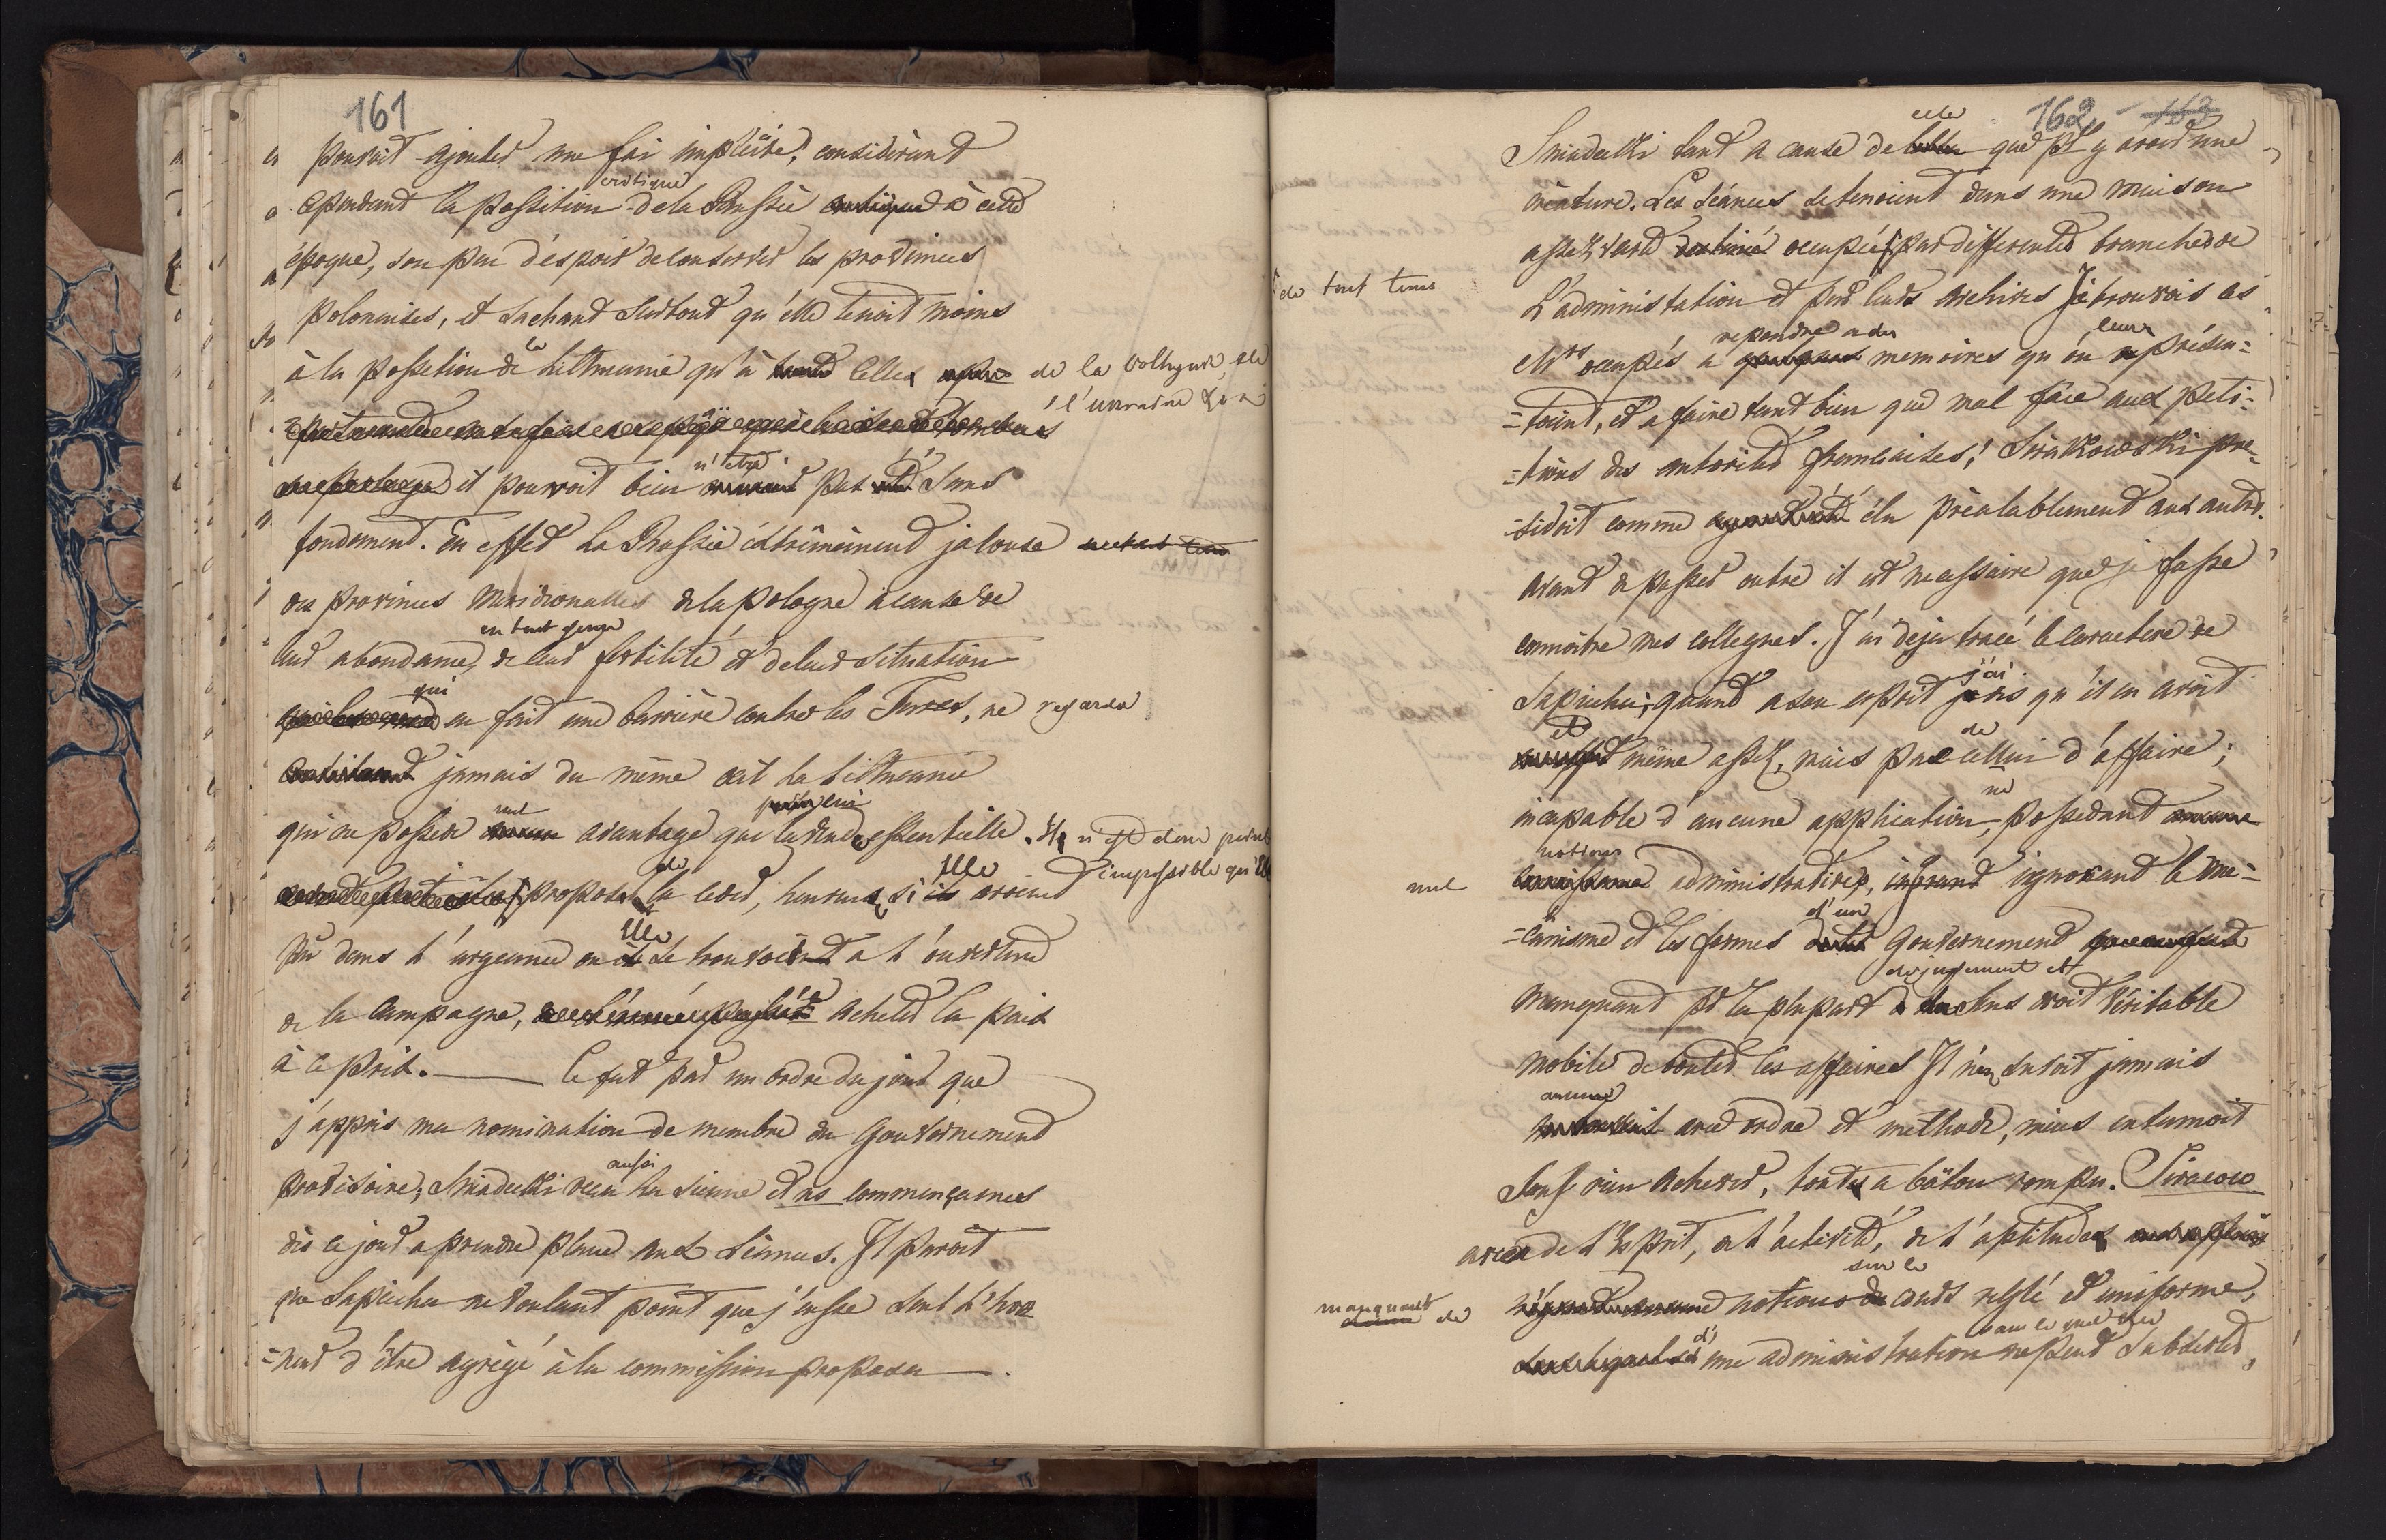 161
pouvoit ajouter une foi implicite, considérant
cependant la possition critique de la Prussie à cette
époque, son peu d'espoir de conserver les provinces
polonaises, et sachant surtout qu'elle tenoit moins
à la possetion de la Lithuanie qu'à celle de la Volhynie, de
l'Ukraine
il pouvoit bien n'être pas sans
fondement. En effet la Prussie extrêmement jalouse
des provinces meridionalles de la pologne à cause de
leur abondance en tout genre, de leur fertilité et de leur situation
qui en fait une barrière contre les Turcs, ne regarda
jamais du même oeil la Lithuanie
qui ne possede nul avantage qui la rende essentielle. Il n'est donc point
impossible qu'Elle
proposa de la ceder, heureuse si Elle avoient
pu dans l'urgence ou Elle se trouvoit a l'ouverture
de la campagne, acheter la paix
à ce prix. — Ce fut par un ordre du jour que
j'appris ma nomination de membre du Gouvernement
provisoire, Sniadecki recu aussi la sienne et ns commençames
dès ce jour a prendre place aux séances. Il paroit
que Sapieha ne voulant point que j'eusse seul l'hon
=neur d'être agrégé à la commission proposa
162
Sniadecki tant a cause de cela que pr y avoir une
créature. Les séances se tenoient dans une maison
assez vaste occupée de tout tems par differentes branches de
L'administation et par leurs archives Je trouvois ces
Mrs occupés a repondre a des memoires qu'on leur présen=
=toient, et a faire tant bien que mal face aux peti=
=tions des autorités francaises. Sirakowski pre=
=sidoit comme élu préalablement aux autres.
avant de passer outre il est necessaire que je fasse
connoitre mes collegues. J'ai deja tracé le caractere de
Sapieha; quand a son esprit j'ai dis qu'il en avoit
et même assez, mais pas de celui d'affaire;
incapable d'aucune application, ne possedant
nul notions administratives, ignorant le mé=
=canisme et les formes d'un Gouvernement
manquant pr la plupart de jugement et sens droit véritable
mobile de toutes les affaires Il n'en suivoit jamais
aucune avec ordre et methode, mais entamoit
sans rien achever, toutes a bâton rompu. Siracow
avec de l'Esprit, de l'activité, de l'aptitude
manquant de notions sur le cours reglé et uniforme,
sans le quel une administration ne peut subsister,